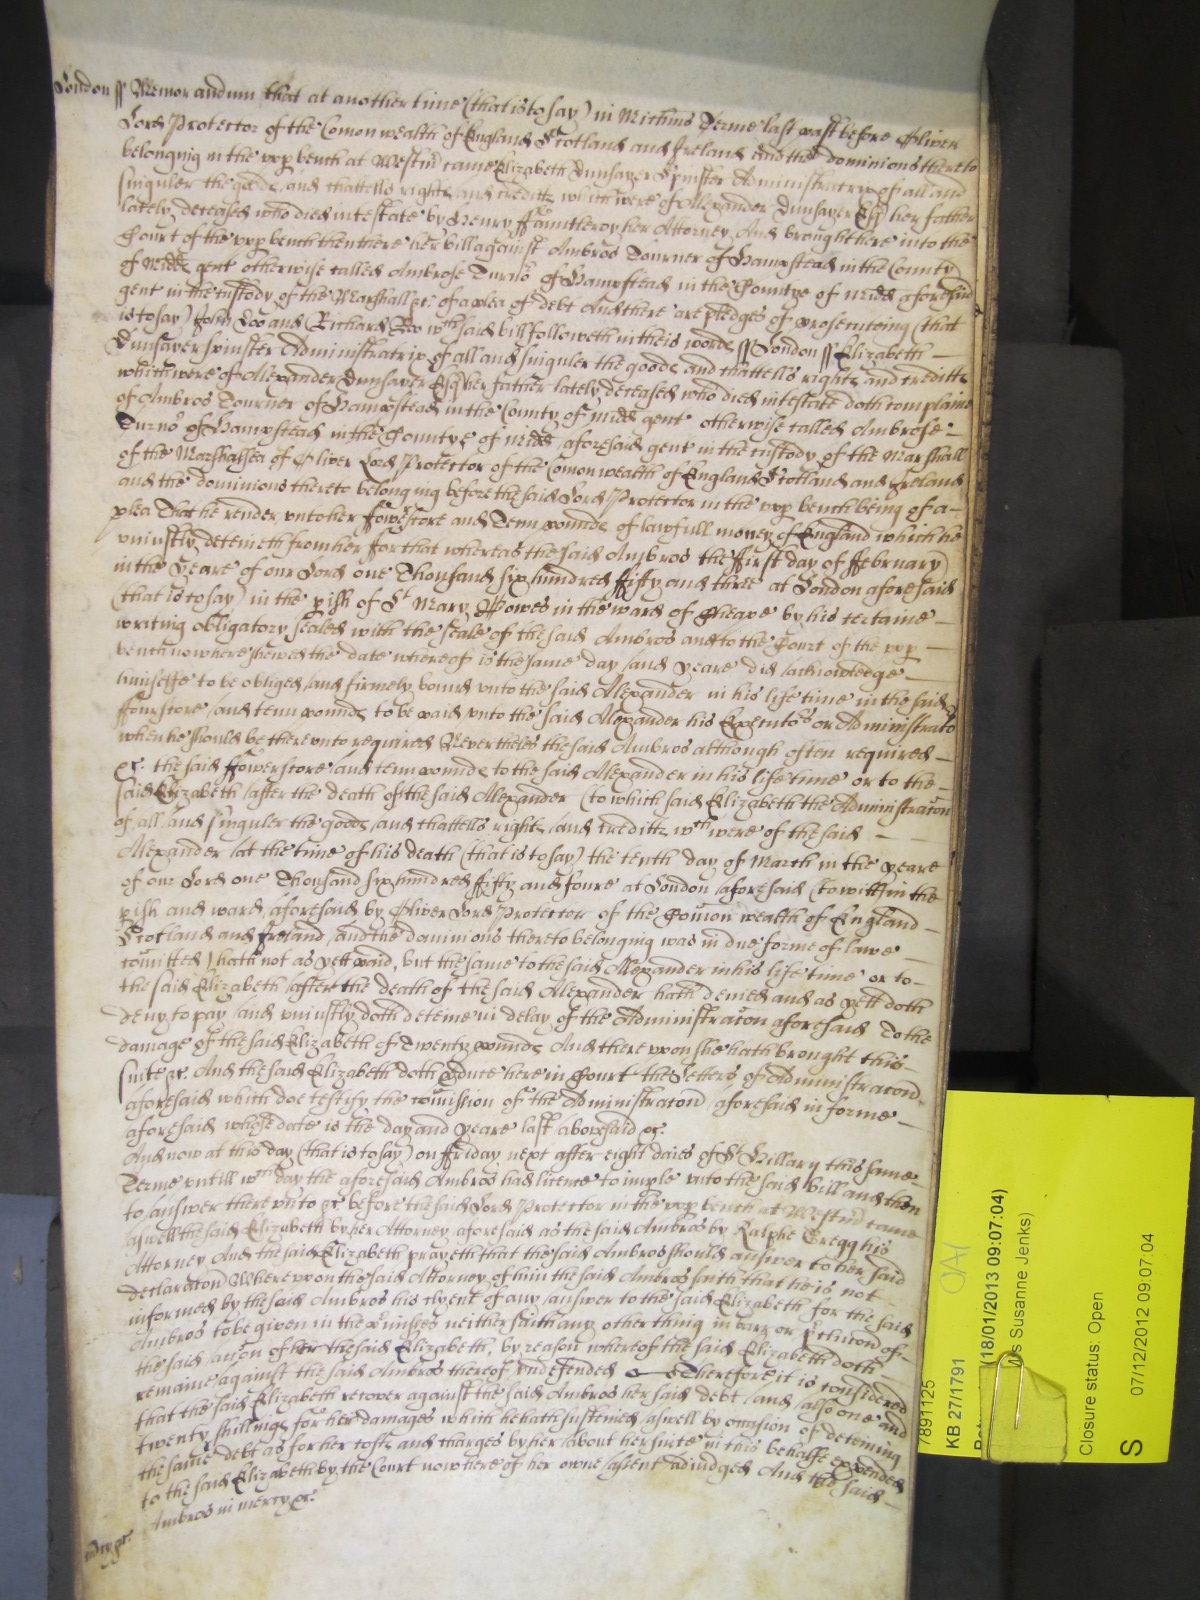 London ss Memorandum that at another time (that is to say) in Michmis Terme last past before Oliver
Lord Protector of the Comonwealth of England Scotland and Ireland and the dominions thereto
belonging in the vpp bench at Westm came Elizabeth Dunsayer Spinster Administratrix of all and
singuler the goods and chattells rights and creditts which were of Alexander Dunsayer Esq her father
lately deceased who died intestate by Henry ffauntleroy her Attorney And brought here into the
Court of the vpp bench then there her bill against Ambros Tourner of Hampstead in the County
of Midds gent otherwise called Ambrose Turno of Hampstead in the Countye of Midds aforesaid
gent in the custody of the Marshall &c. of a plea of debt And there are pledges of prosecuteing (that
is to say) John Doo and Richard Roo wch said bill followeth in theis words ss London ss Elizabeth
Dunsayer spinster Administratrix of all and singuler the goods and chattells rights and creditts
which were of Alexander Dunsayer Esq her father lately deceased who died intestate doth complaine
of Ambros Tourner of Hampstead in the County of Midds gent otherwise called Ambrose
Turno of Hampstead in the Countye of Midds aforesaid gent in the custody of the Marshall
of the Marshalsea of Oliver Lord Protector of the Comonwealth of England Scotland and Ireland
and the dominions thereto belonging before the said Lord Protector in the vpp bench being of a
plea That he render vnto her fowerscore and Tenn pounds of lawfull money of England which he
vniustly deteineth from her ffor that whereas the said Ambros the ffirst day of ffebruary
in the Yeare of our Lord one Thousand six hundred ffifty and three at London aforesaid
(that is to say) in the pish of St Mary Bowe in the ward of Cheape by his certaine
writing obligatory sealed with the seale of the said Ambros and to the Court of the vpp
bench now here shewed the date whereof is the same day and yeare did acknowledge
himselfe to be obliged and firmely bound vnto the said Alexander in his life time in the said
ffourscore and tenn pounds to be paid vnto the said Alexander his Executors or Administrators
when he should be therevnto required Neverthelesse the said Ambros although often required
&c. the said ffowerscore and tenn pounds to the said Alexander in his life time or to the
said Elizabeth after the death of the said Alexander (to which said Elizabeth the Administracon
of all and singuler the goods and chattells rights and creditts wch were of the said
Alexander at the time of his death (that is to say) the tenth day of March in the yeare
of our Lord one Thousand six hundred ffifty and foure at London aforesaid (to witt) in the
pish and ward aforesaid by Oliver Lord Protector of the Comon wealth of England
Scotland and Ireland and the dominions thereto belonging was in due forme of lawe
comitted) hath not as yett paid, but the same to the said Alexander in his life time or to
the said Elizabeth after the death of the said Alexander hath denied and as yett doth
deny to pay and vniustly doth deteine in delay of the Administracon aforesaid To the
damage of the said Elizabeth of Twenty pounds And therevpon she hath brought this
suite &c. And the said Elizabeth doth pduce here in Court the Letters of Administracon
aforesaid which doe testify the comission of the Administracon aforesaid in forme
aforesaid whose date is the day and yeare last abovesaid &c.
And now at this day (that is to say) on ffriday next after eight daies of St Hillary this same
Terme vntill wch day the aforesaid Ambros had licence to imple vnto the said bill and then
to answer therevnto &c. before the said Lord Protector in the vpp bench at Westm came
aswell the said Elizabeth by her Attorney aforesaid as the said Ambros by Ralphe Gregg his
Attorney And the said Elizabeth prayeth that the said Ambros should answer to her said
declaracon Wherevpon the said Attorney of him the said Ambros saith that he is not
informed by the said Ambros his clyent of any answer to the said Elizabeth for the said
Ambros to be given in the pmisses neither saith any other thing in barr or pclucon of
the said accon of her the said Elizabeth, by reason whereof the said Elizabeth doth
remaine against the said Ambros thereof vndefended Therefore it is considered
that the said Elizabeth recover against the said Ambros her said debt, and also one and
twenty shillings for her damages which he hath susteined aswell by occasion of deteining
the same debt as for her costs and charges by her about her suite in this behalfe expended
to the said Elizabeth by the Court now here of her owne assent adiudged And the said
Ambros in mercy &c.
mcy &c.
7891125
KB 27/1791
(18/01/2013 09:07:04)
Ms Susanne Jenks)
Closure status: Open
S
07/12/2012 09:07:04